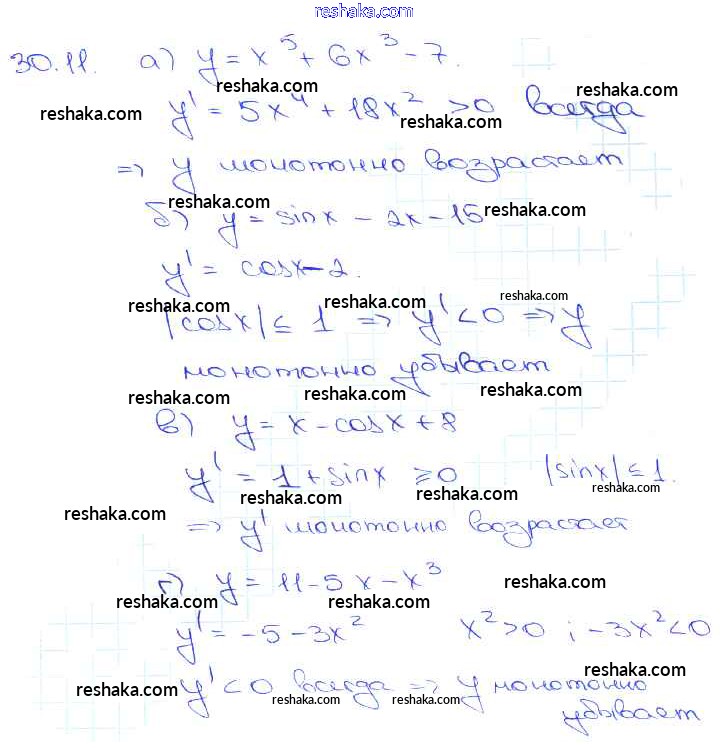 reshaka.com
30.11. а) y = x⁵ + 6x³ - 7.
reshaka.com reshaka.com
reshaka.com y' = 5x⁴ + 18x² >0 всегда
reshaka.com
=> y монотонно возрастает
reshaka.com
б) y = sinx - 2x - 15 reshaka.com
reshaka.com
y' = cosx - 2.
reshaka.com reshaka.com reshaka.com
|cosx| ≤ 1 => y' < 0 => y
монотонно убывает
reshaka.com reshaka.com reshaka.com
в) y = x - cosx + 8
reshaka.com
y' = 1 + sinx ≥ 0 |sinx| ≤ 1.
reshaka.com reshaka.com reshaka.com
reshaka.com => y' монотонно возрастает
г) y = 11 - 5x - x³ reshaka.com
reshaka.com reshaka.com
y' = -5 - 3x² x² > 0 ; -3x² < 0
reshaka.com
reshaka.com y' < 0 всегда => y монотонно
reshaka.com reshaka.com
убывает